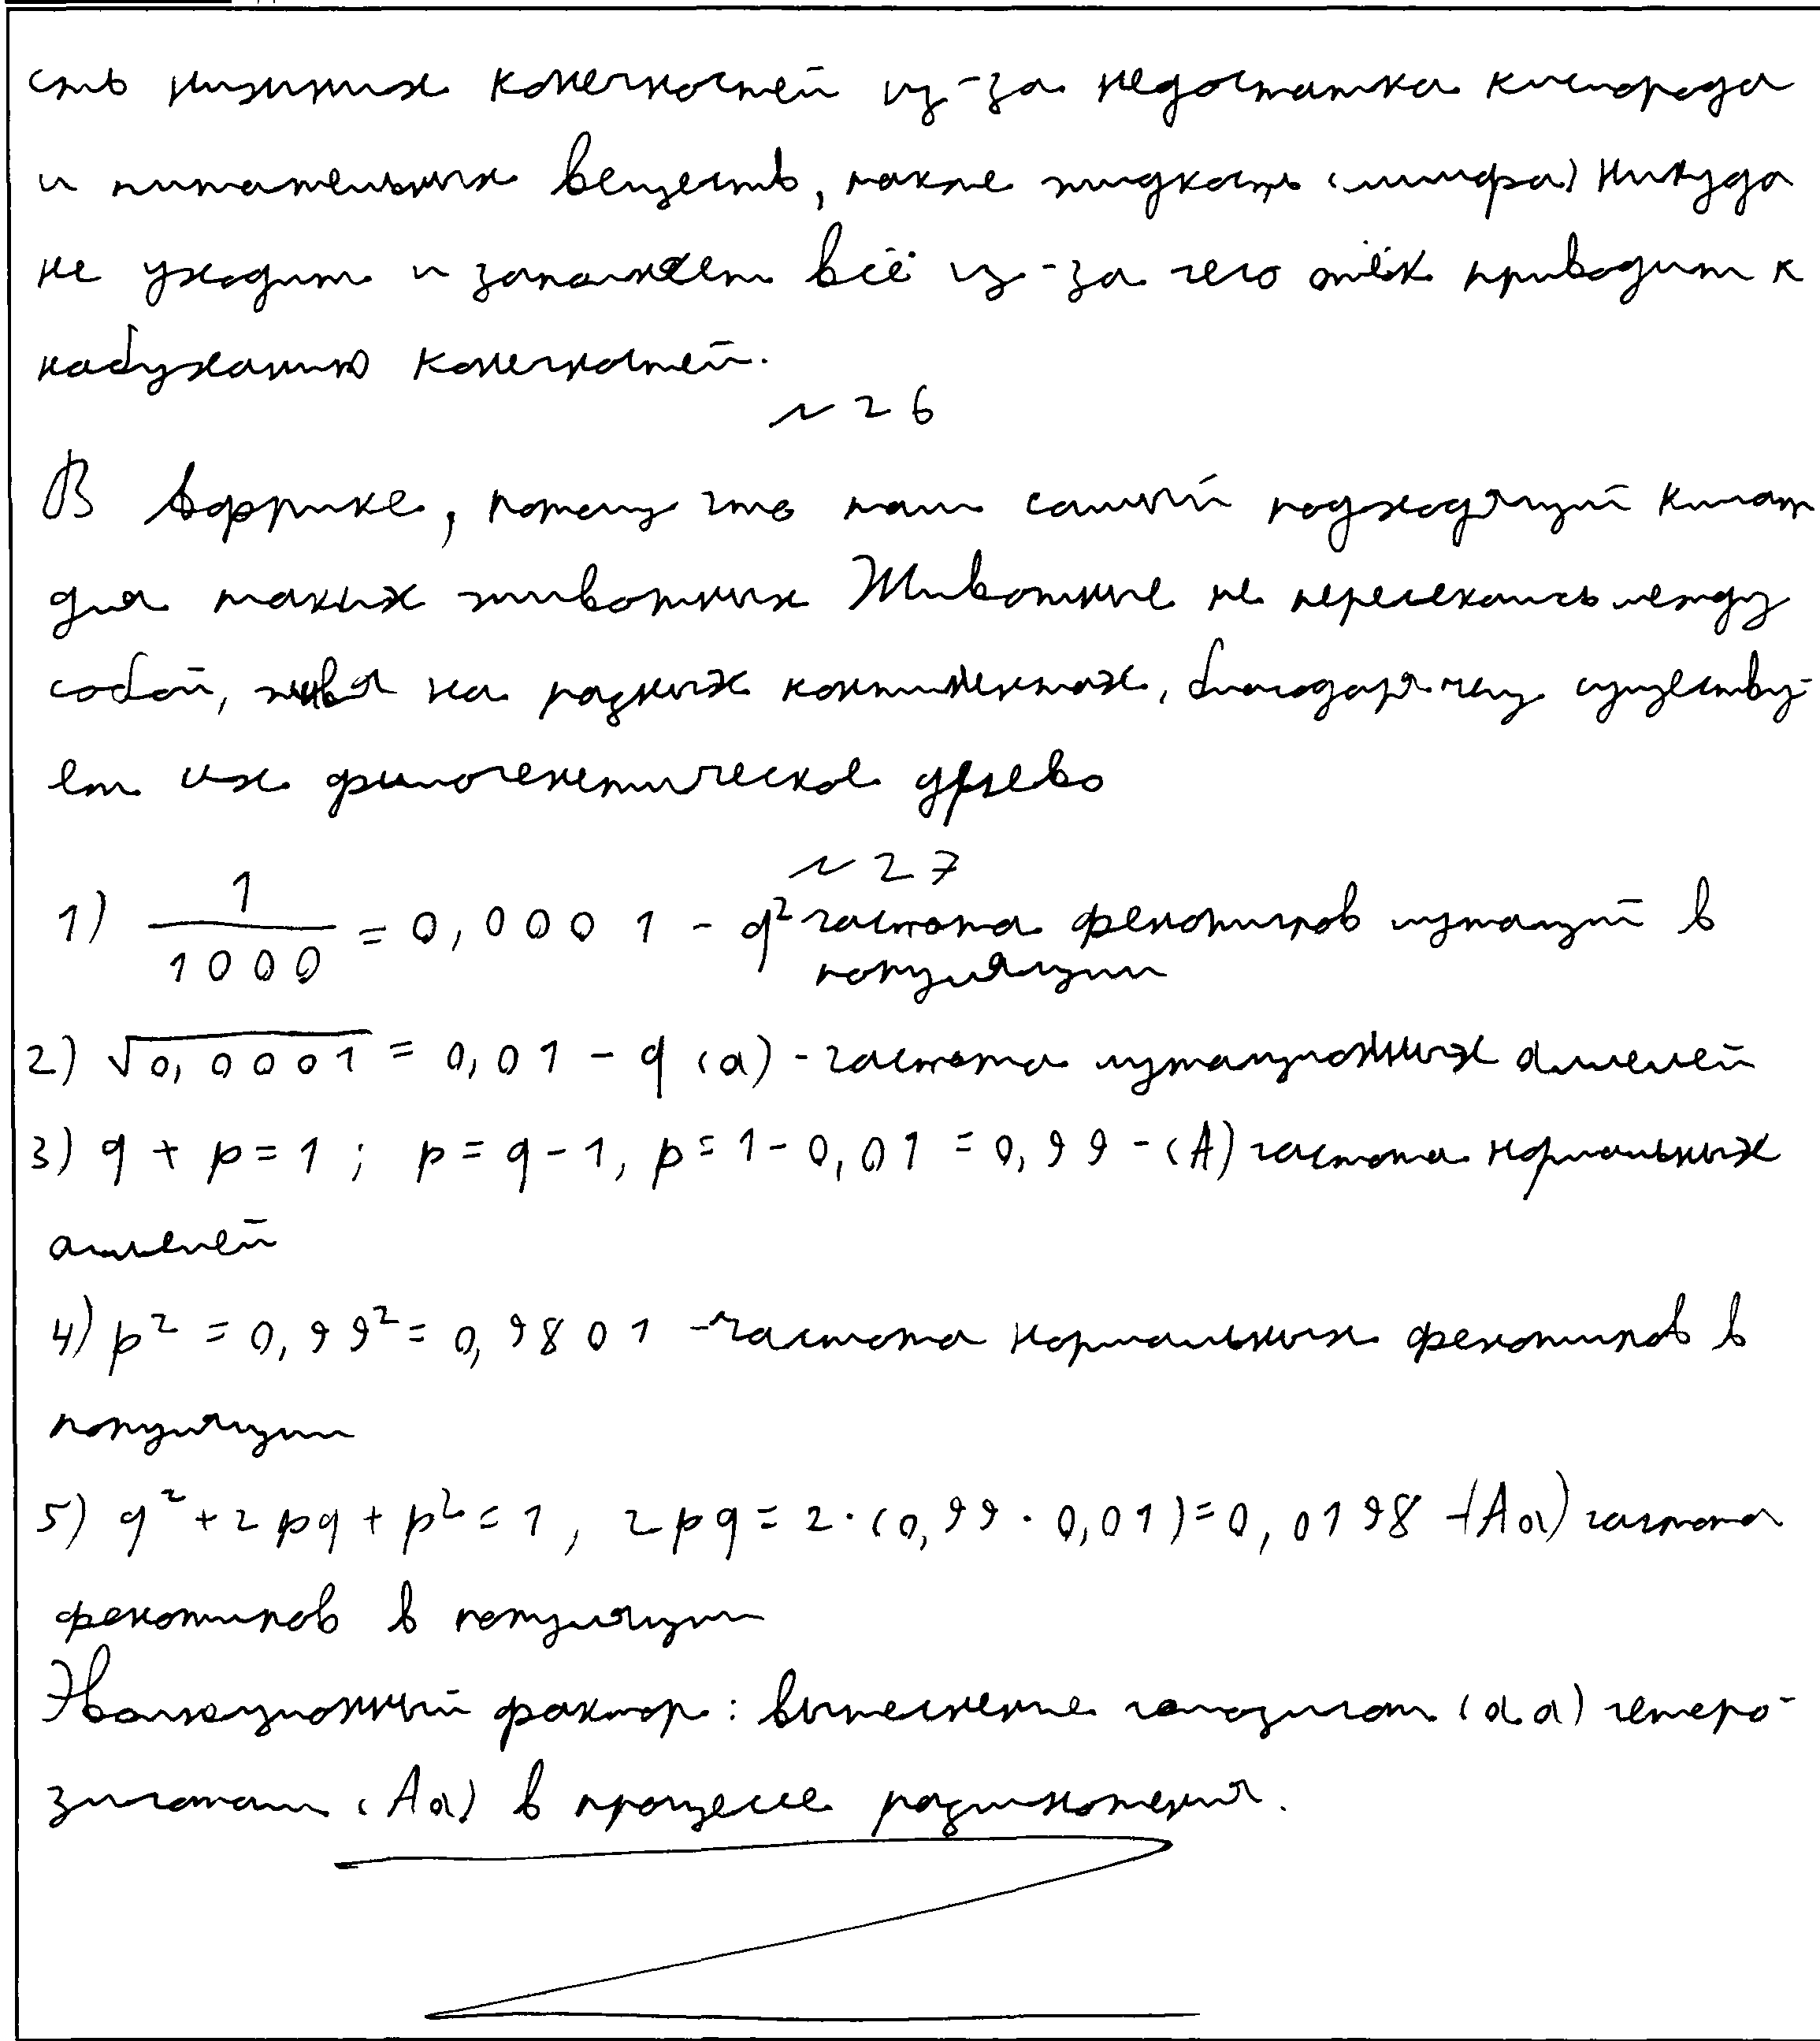 сть нижних конечностей из-за недостатка кислорода
и питательных веществ, также жидкость (лимфа) никуда
не уходит и заполняет всё из-за чего отёк приводит к
набуханию конечностей.
~ 26
В Африке, потому что там самый подходящий климат
для таких животных Животные не пересекались между
собой, живя на разных континентах, благодаря чему существу-
ет их филогенетическое древо
~ 27
1) 1/1000 = 0,0001 - q² частота фенотипов мутаций в
популяции
2) √0,0001 = 0,01 - q (a) - частота мутационных аллелей
3) q + p = 1 ; p = q - 1, p = 1 - 0,01 = 0,99 - (A) частота нормальных
аллелей
4) p² = 0,99² = 0,9801 - частота нормальных фенотипов в
популяции
5) q² + 2pq + p² = 1, 2pq = 2·(0,99·0,01) = 0,0198 - (Aa) частота
фенотипов в популяции
Эволюционный фактор: вытеснение гомозигот (aa) гетеро-
зиготами (Aa) в процессе размножения.